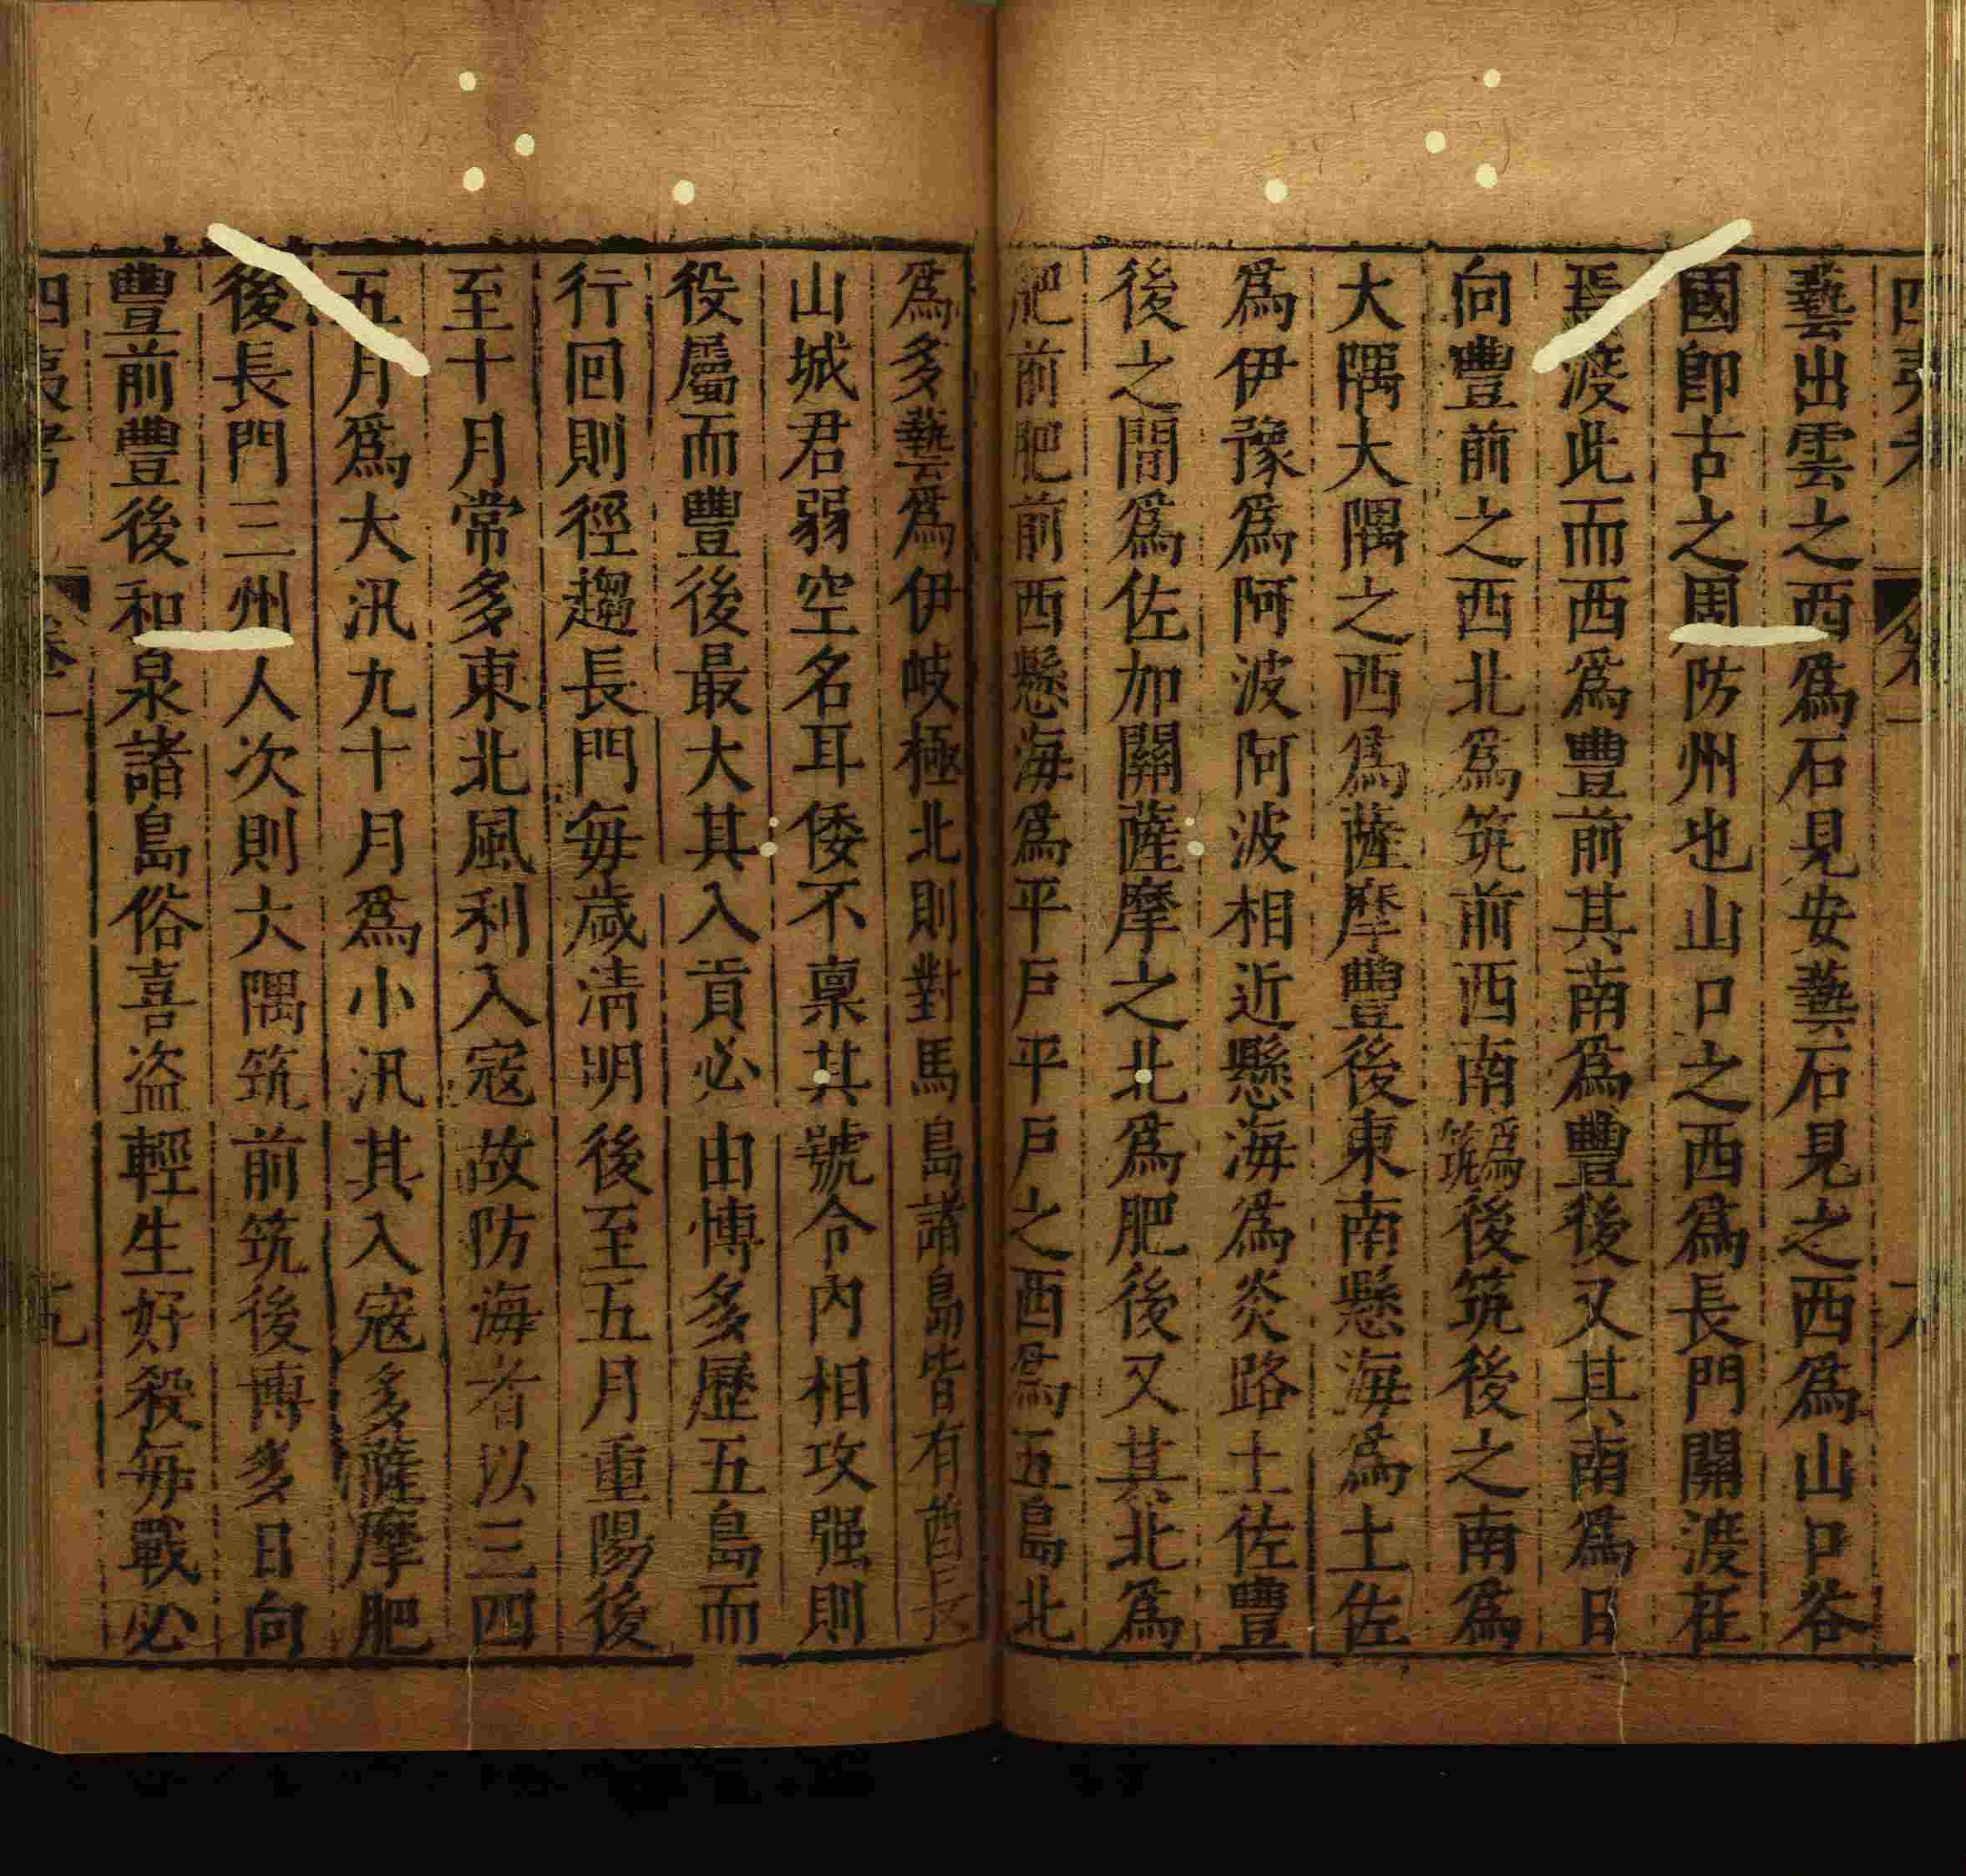 四夷考
卷一
八
藝出雲之西爲石見安藝石見之西爲山口谷
國卽古之周防州也山口之西爲長門關渡在
焉渡此而西爲豐前其南爲豐後又其南爲日
向豐前之西北爲筑前西南爲筑後筑後之南爲
大隅大隅之西爲薩摩豐後東南懸海爲土佐
爲伊豫爲阿波阿波相近懸海爲炎路土佐豐
後之間爲佐加關薩摩之北爲肥後又其北爲
肥前肥前西懸海爲平戶平戶之西爲五島北
爲多藝爲伊岐極北則對馬島諸島皆有酋長
山城君弱空名耳倭不稟其號令內相攻强則
役屬而豐後最大其入貢必由博多歷五島而
行回則徑趨長門每歲淸明後至五月重陽後
至十月常多東北風利入寇故防海者以三四
五月爲大汛九十月爲小汛其入寇多薩摩肥
後長門三州人次則大隅筑前筑後博多日向
豐前豐後和泉諸島俗喜盜輕生好殺每戰必
四夷考
卷一
九